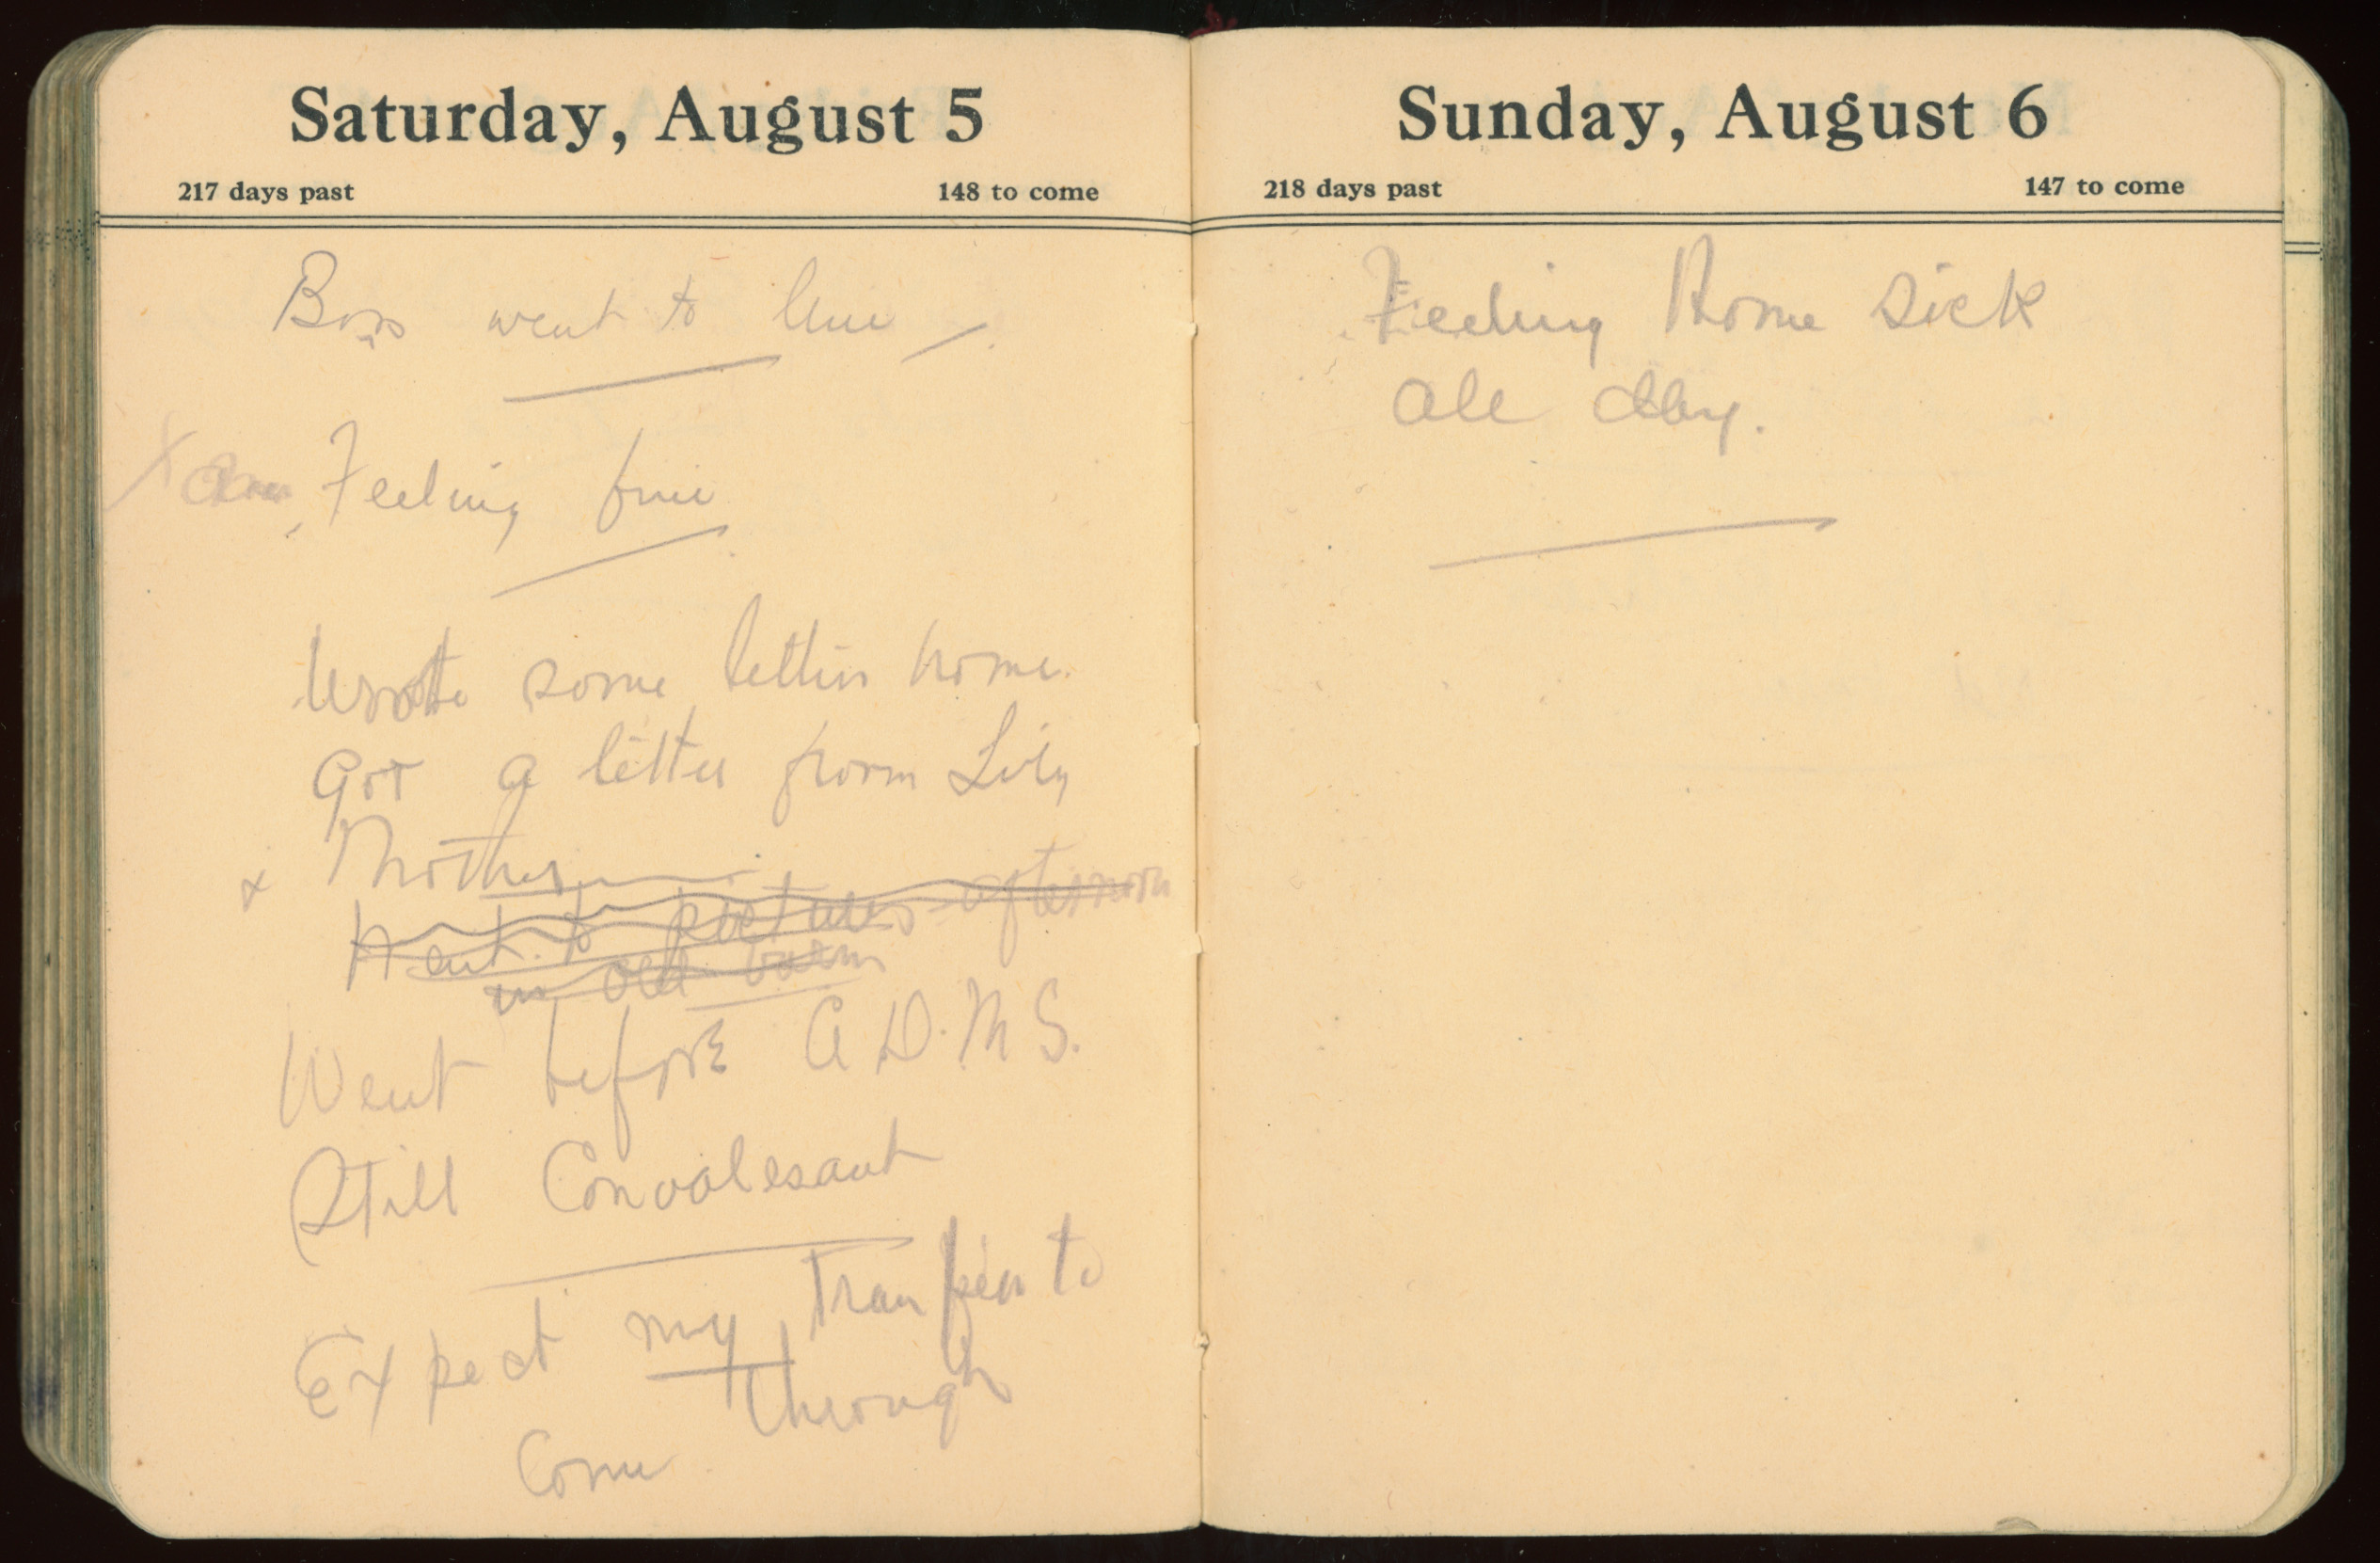 Saturday, August 5
217 days past 148 to come
Boys went to line
Am Feeling fine
Wrote some letters home.
Got a letter from Lily
& Mother
Went to pictures afternoon
in old barn
Went before A D. M S.
Still Convalesant
Expect my Tranfer to
Come through
Sunday, August 6
218 days past 147 to come
Feeling Home Sick
all day.